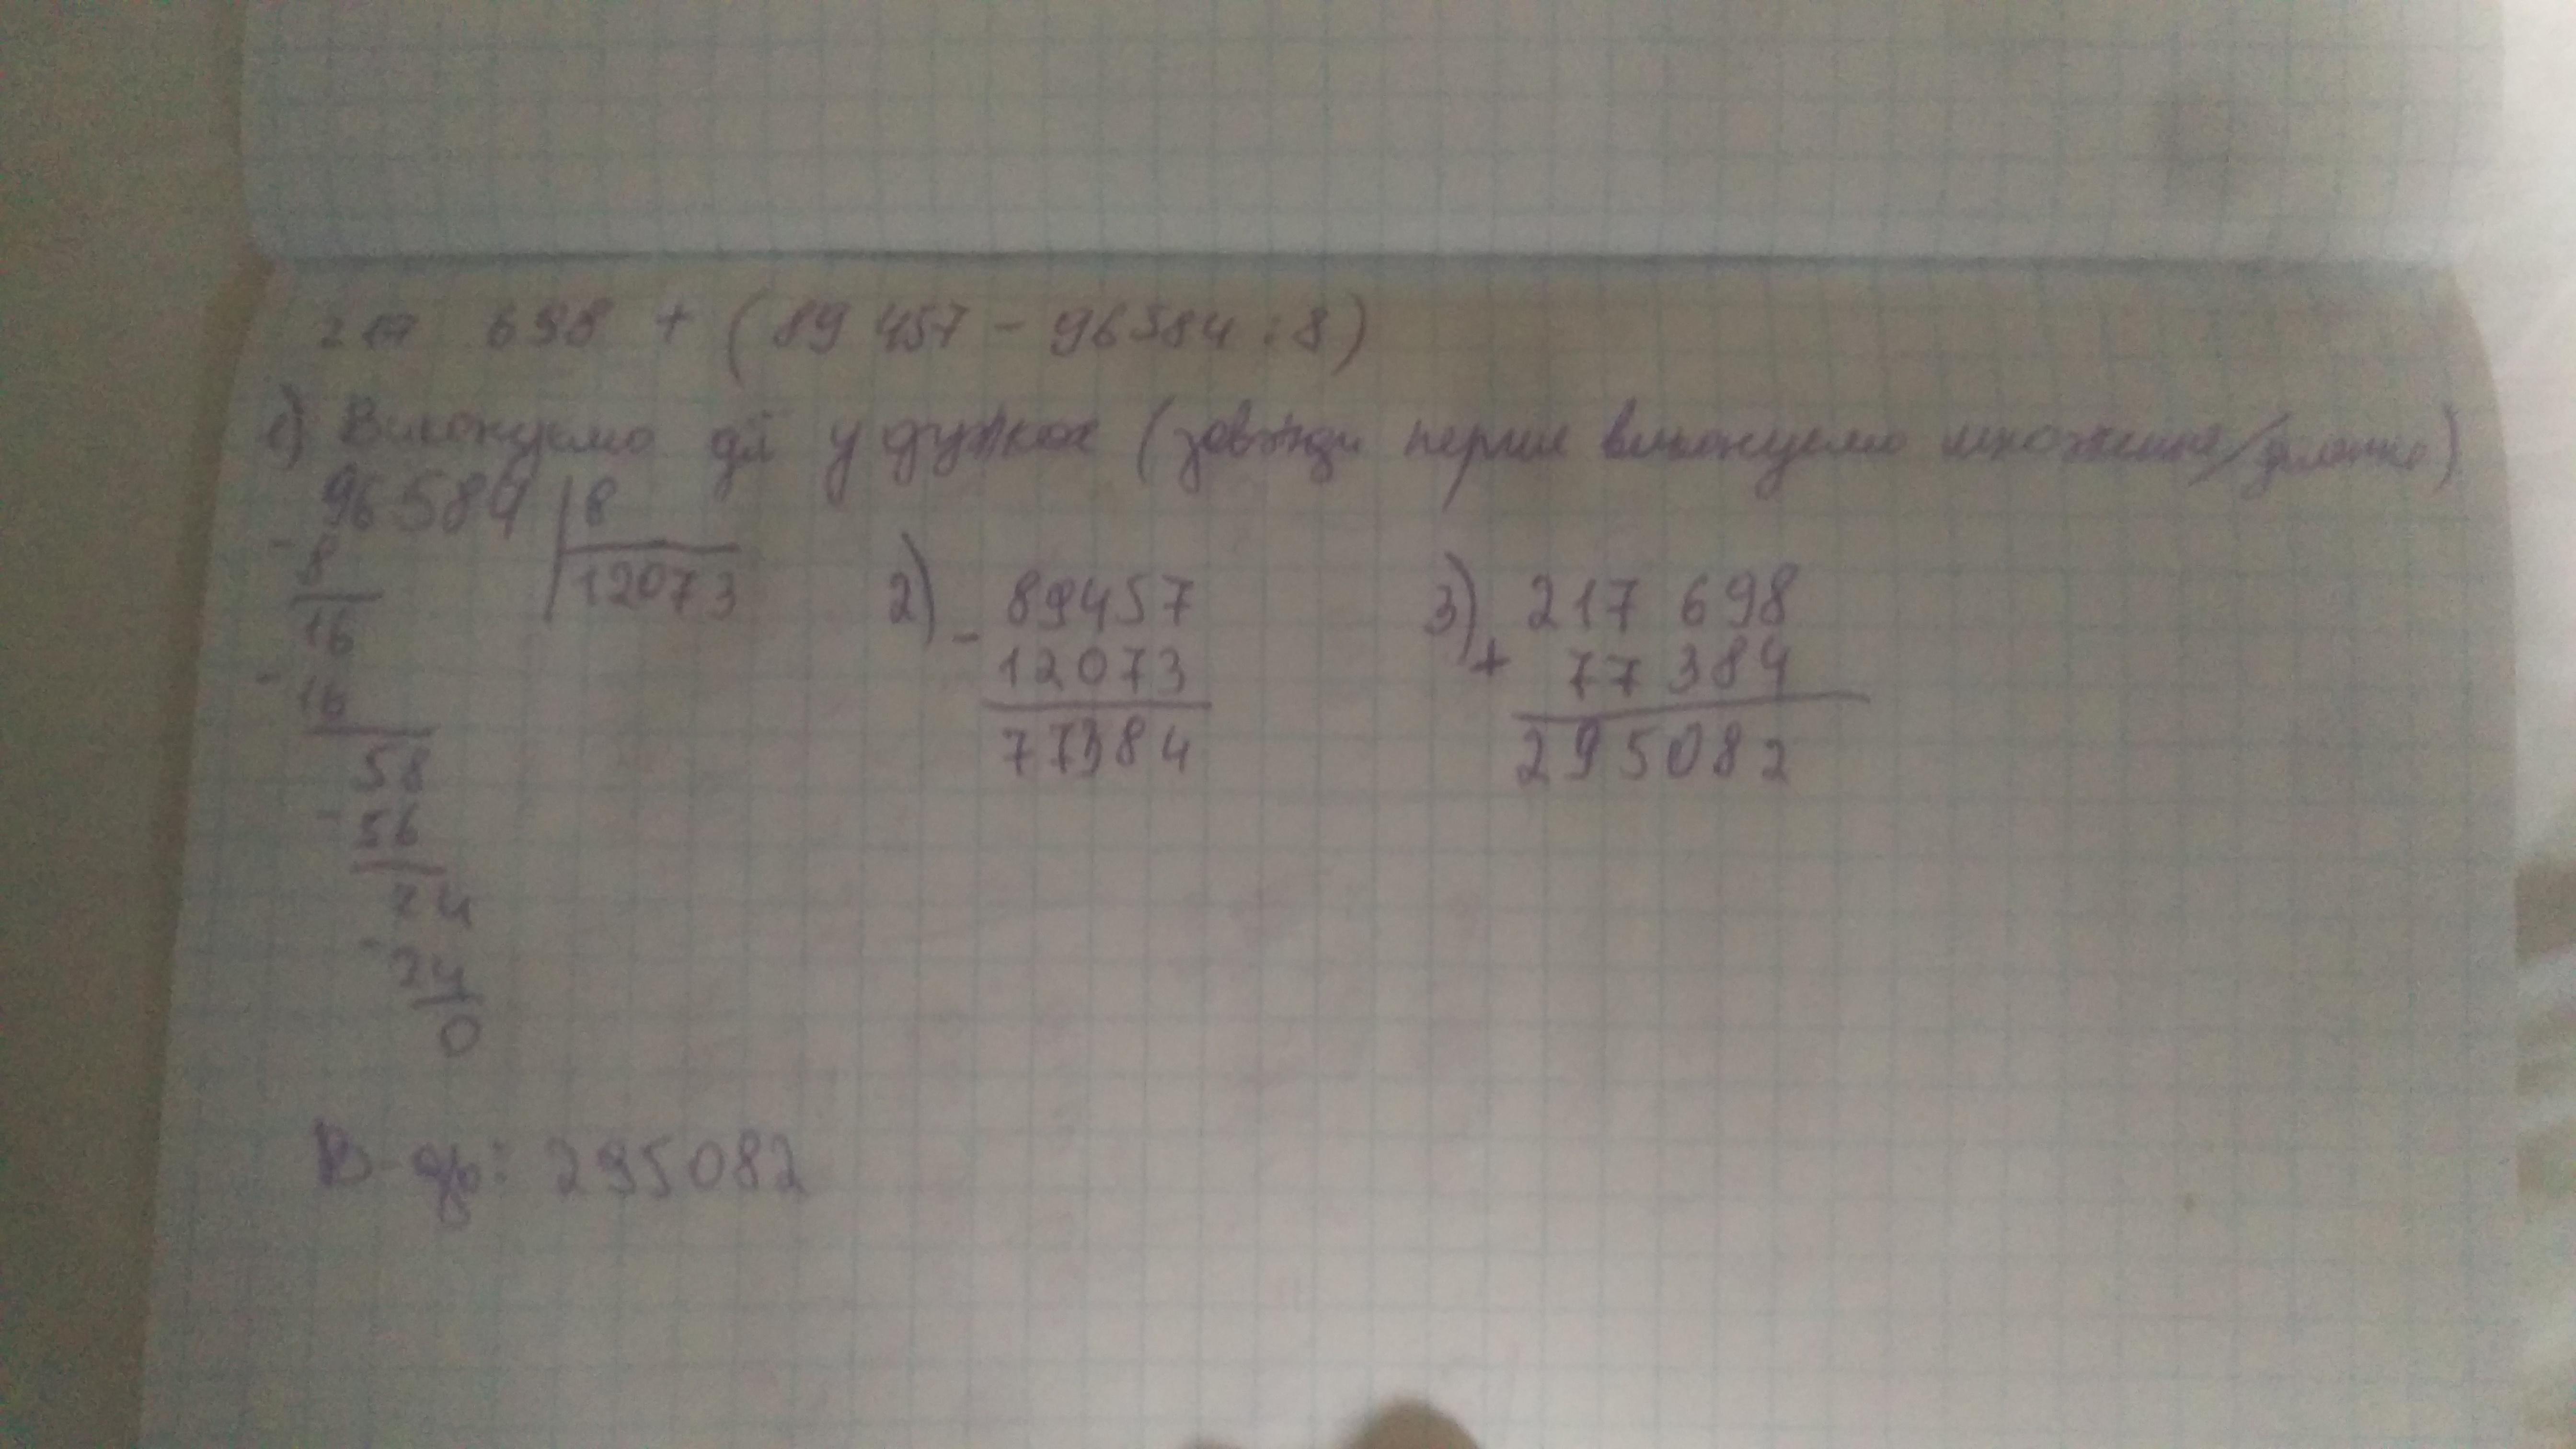 217 698 + (89 457 - 96584 : 8)
1) Виконуємо дії у дужках (завжди перше виконуємо множення/ділення)
96584 | 8
- 8
12073
16
- 16
58
- 56
24
- 24
0
2) - 89457
12073
77384
3) + 217 698
77 384
295082
В-дь: 295082